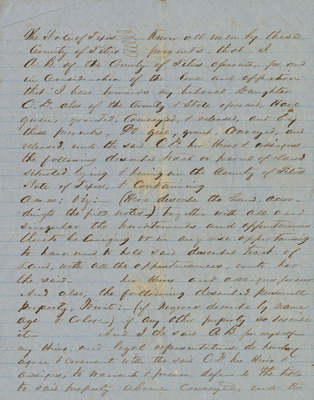 The State of Texas Know all men by these
County of Titus presents, that I
A. B. of the County of Titus aforesaid, for and
in Consideration of the love and affection
that I bear towards my beloved Daughter
C. D. also of the County & State aforesaid, Have
given, granted, Conveyed, & released, and by
these presents, Do give, grant, Convey, and
release, unto the said C. D. her Heirs & assigns
the following described tract or parcel of Land
Situated lying & being in the County of Titus
State of Texas, & Containing
Acres: viz: (Here describe the Land, accor-
ding to the field notes) together with all and
singular the hereditaments and appurtenances
thereto belonging or in any wise appertaining
to have and to hold said described tract of
Land, with all the appurtenances, unto her
the said her Heirs and assigns forever
And also, the following described personal
Property, (if Negroes describe by name
age & Color) (if any other property also describe
it And I the said A. B. for myself
my Heirs, and legal representatives, do hereby
agree & Covenant with the said C. D. her Heirs &
assigns, to warrant & forever defend the title
to said property above Conveyed, unto the